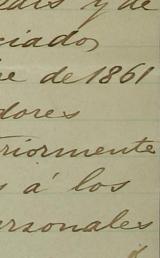 pais y de
ciado,
re de 1861
dores
riormente
s á los
ersonales